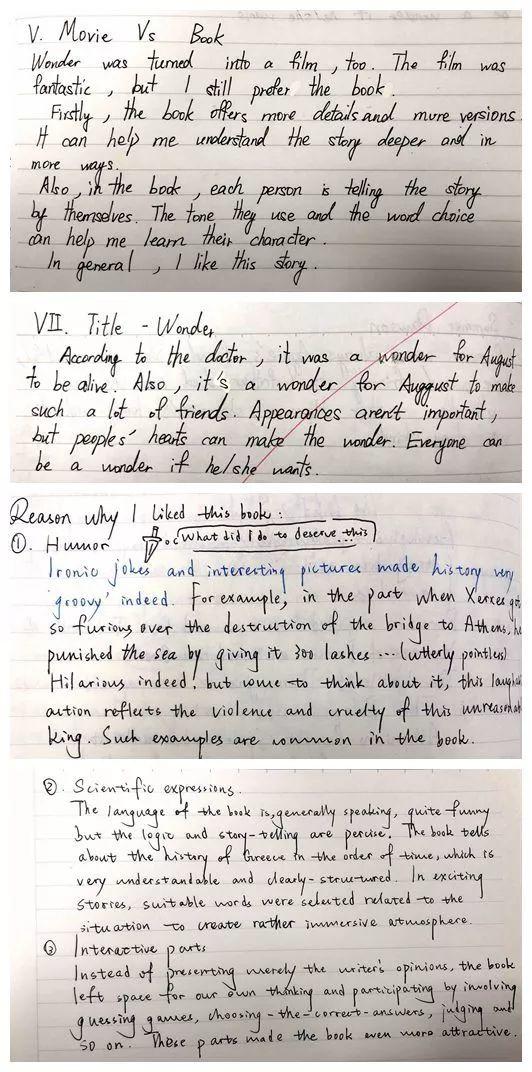 V. Movie Vs Book
Wonder was turned into a film, too. The film was
fantastic, but I still prefer the book.
Firstly, the book offers more details and more versions.
It can help me understand the story deeper and in
more ways.
Also, in the book, each person is telling the story
by themselves. The tone they use and the word choice
can help me learn their character.
In general, I like this story.
VII. Title - Wonder
According to the doctor, it was a wonder for August
to be alive. Also, it's a wonder for Auggust to make
such a lot of friends. Appearances aren't important,
but peoples' hearts can make the wonder. Everyone can
be a wonder if he/she wants.
Reason why I liked this book:
①. Humor
What did I do to deserve this ...
Ironic jokes and interesting pictures made history very
'groovy' indeed. For example, in the part when Xerxes got
so furious over the destruction of the bridge to Athens, he
punished the sea by giving it 300 lashes ... (utterly pointless)
Hilarious indeed! but come to think about it, this
action reflects the violence and cruelty of this
king. Such examples are common in the book.
②. Scientific expressions.
The language of the book is, generally speaking, quite funny
but the logic and story-telling are percise. The book tells
about the history of Greece in the order of time, which is
very understandable and clearly-structured. In exciting
stories, suitable words were selected related to the
situation to create rather immersive atmosphere.
③ Interactive parts
Instead of presenting merely the writer's opinions, the book
left space for our own thinking and participating by involving
guessing games, choosing-the-correct-answers, judging and
so on. These parts made the book even more attractive.